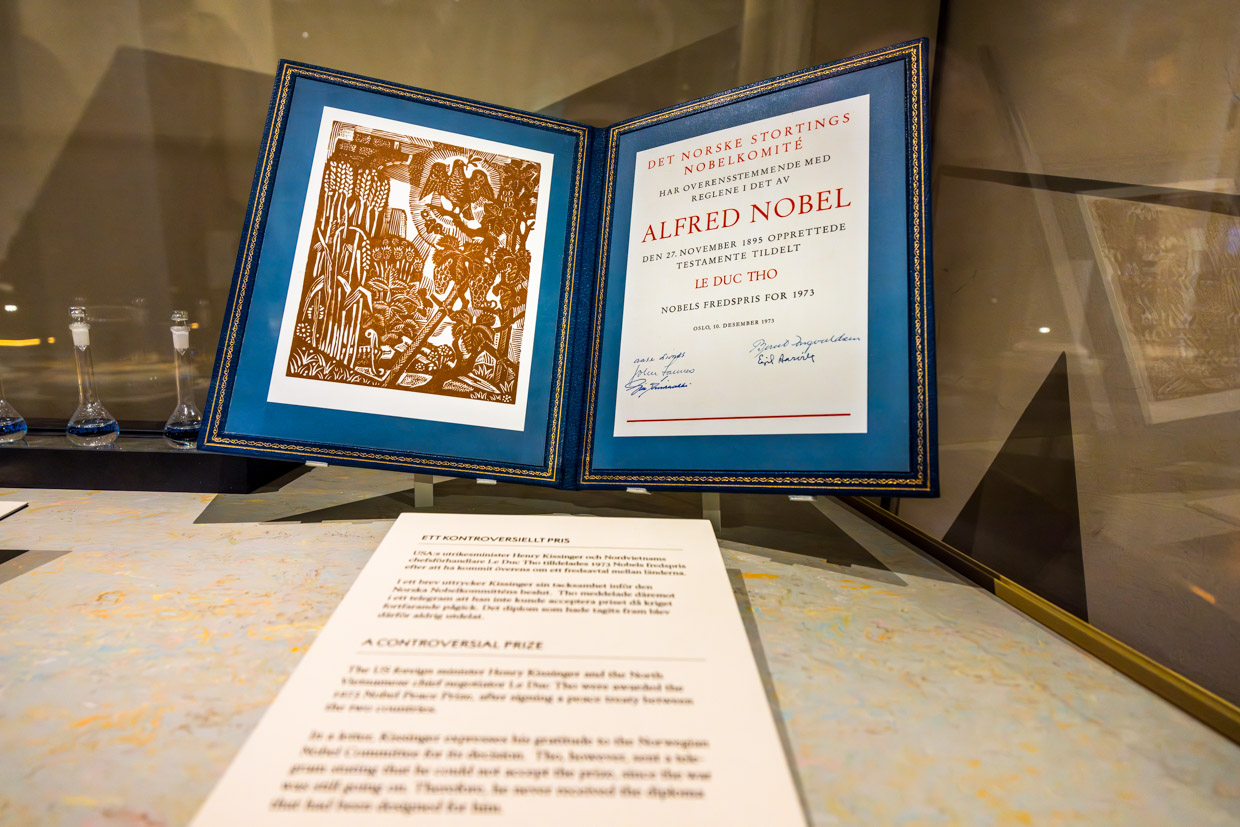 DET NORSKE STORTINGS
NOBELKOMITÉ
HAR OVERENSSTEMMENDE MED
REGLENE I DET AV
ALFRED NOBEL
DEN 27. NOVEMBER 1895 OPPRETTEDE
TESTAMENTE TILDELT
LE DUC THO
NOBELS FREDSPRIS FOR 1973
OSLO, 10. DESEMBER 1973
ETT KONTROVERSIELLT PRIS
USA:s utrikesminister Henry Kissinger och Nordvietnams
chefsförhandlare Le Duc Tho tilldelades 1973 Nobels fredspris
efter att ha kommit överens om ett fredsavtal mellan länderna.
I ett brev uttrycker Kissinger sin tacksamhet inför den
Norska Nobelkommitténs beslut. Tho meddelade däremot
i ett telegram att han inte kunde acceptera priset då kriget
fortfarande pågick. Det diplom som hade tagits fram blev
därför aldrig utdelat.
A CONTROVERSIAL PRIZE
The US foreign minister Henry Kissinger and the North
Vietnamese chief negotiator Le Duc Tho were awarded the
1973 Nobel Peace Prize, after signing a peace treaty between
the two countries.
In a letter, Kissinger expresses his gratitude to the Norwegian
Nobel Committee for its decision. Tho, however, sent a tele-
gram stating that he could not accept the prize, since the war
was still going on. Therefore, he never received the diploma
that had been designed for him.